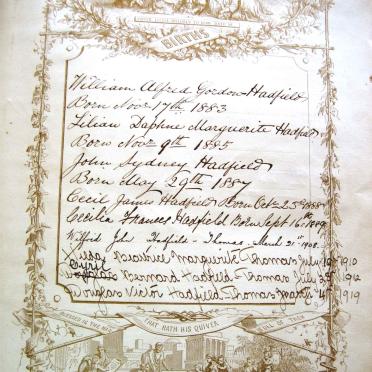 BIRTHS
William Alfred Gordon Hadfield
Born Novr 17th 1883
Lilian Daphne Marguerite Hadfield
Born Novr 9th 1885
John Sydney Hadfield
Born May 29th 1887
Cecil James Hadfield Born Octr 25th 1888
Cecilia Frances Hadfield Born Sept 16th 1889
Wilfred John Hadfield - Thomas. March 21st 1908.
Hilda Beatrice Marguerite Thomas July 19th 1910
Cyril Bernard Hadfield - Thomas July 3rd 1912
Douglas Victor Hadfield Thomas 4th 1919
BLESSED IS THE MAN
THAT HATH HIS QUIVER
FULL OF THEM